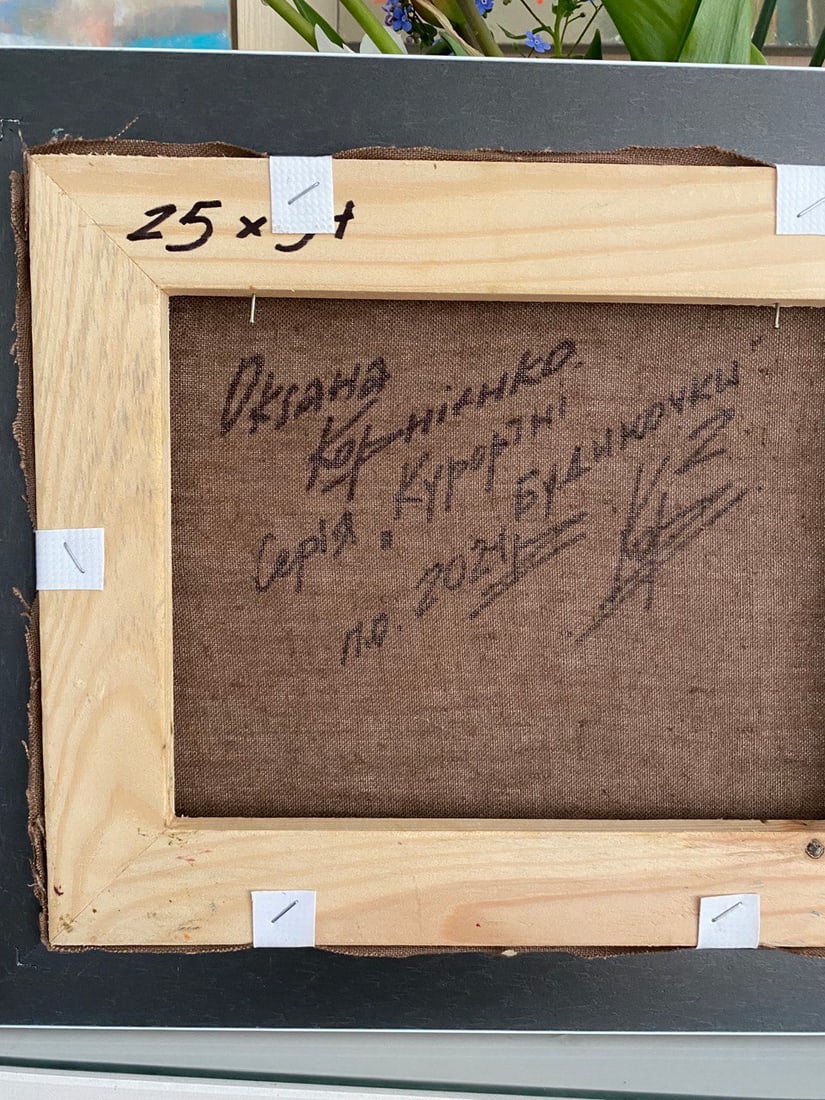 25 x
Оксана
Корнієнко
Серія "Курортні
Будиночки"
п.о. 2021 2